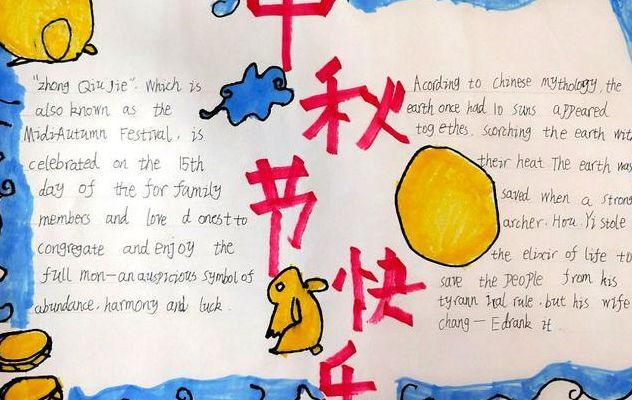 "zhong Qiu Jie". Which is
also known as the
MidiAutumn Festival, is
celebrated on the 15th
day of the for family
members and love d onest to
congregate and enjoy the
full mon—an auspicious symbol of
abundance, harmony and luck.
中
秋
节
快
乐
Acording to chinese mythology, the
earth once had 10 suns appeared
togethes. scorching the earth wit
their heat The earth was
saved when a strong
archer. Hou Yi stole
the elixir of life to
save the people from his
tyrann ical rule, but his wife
chang— Edrank it.